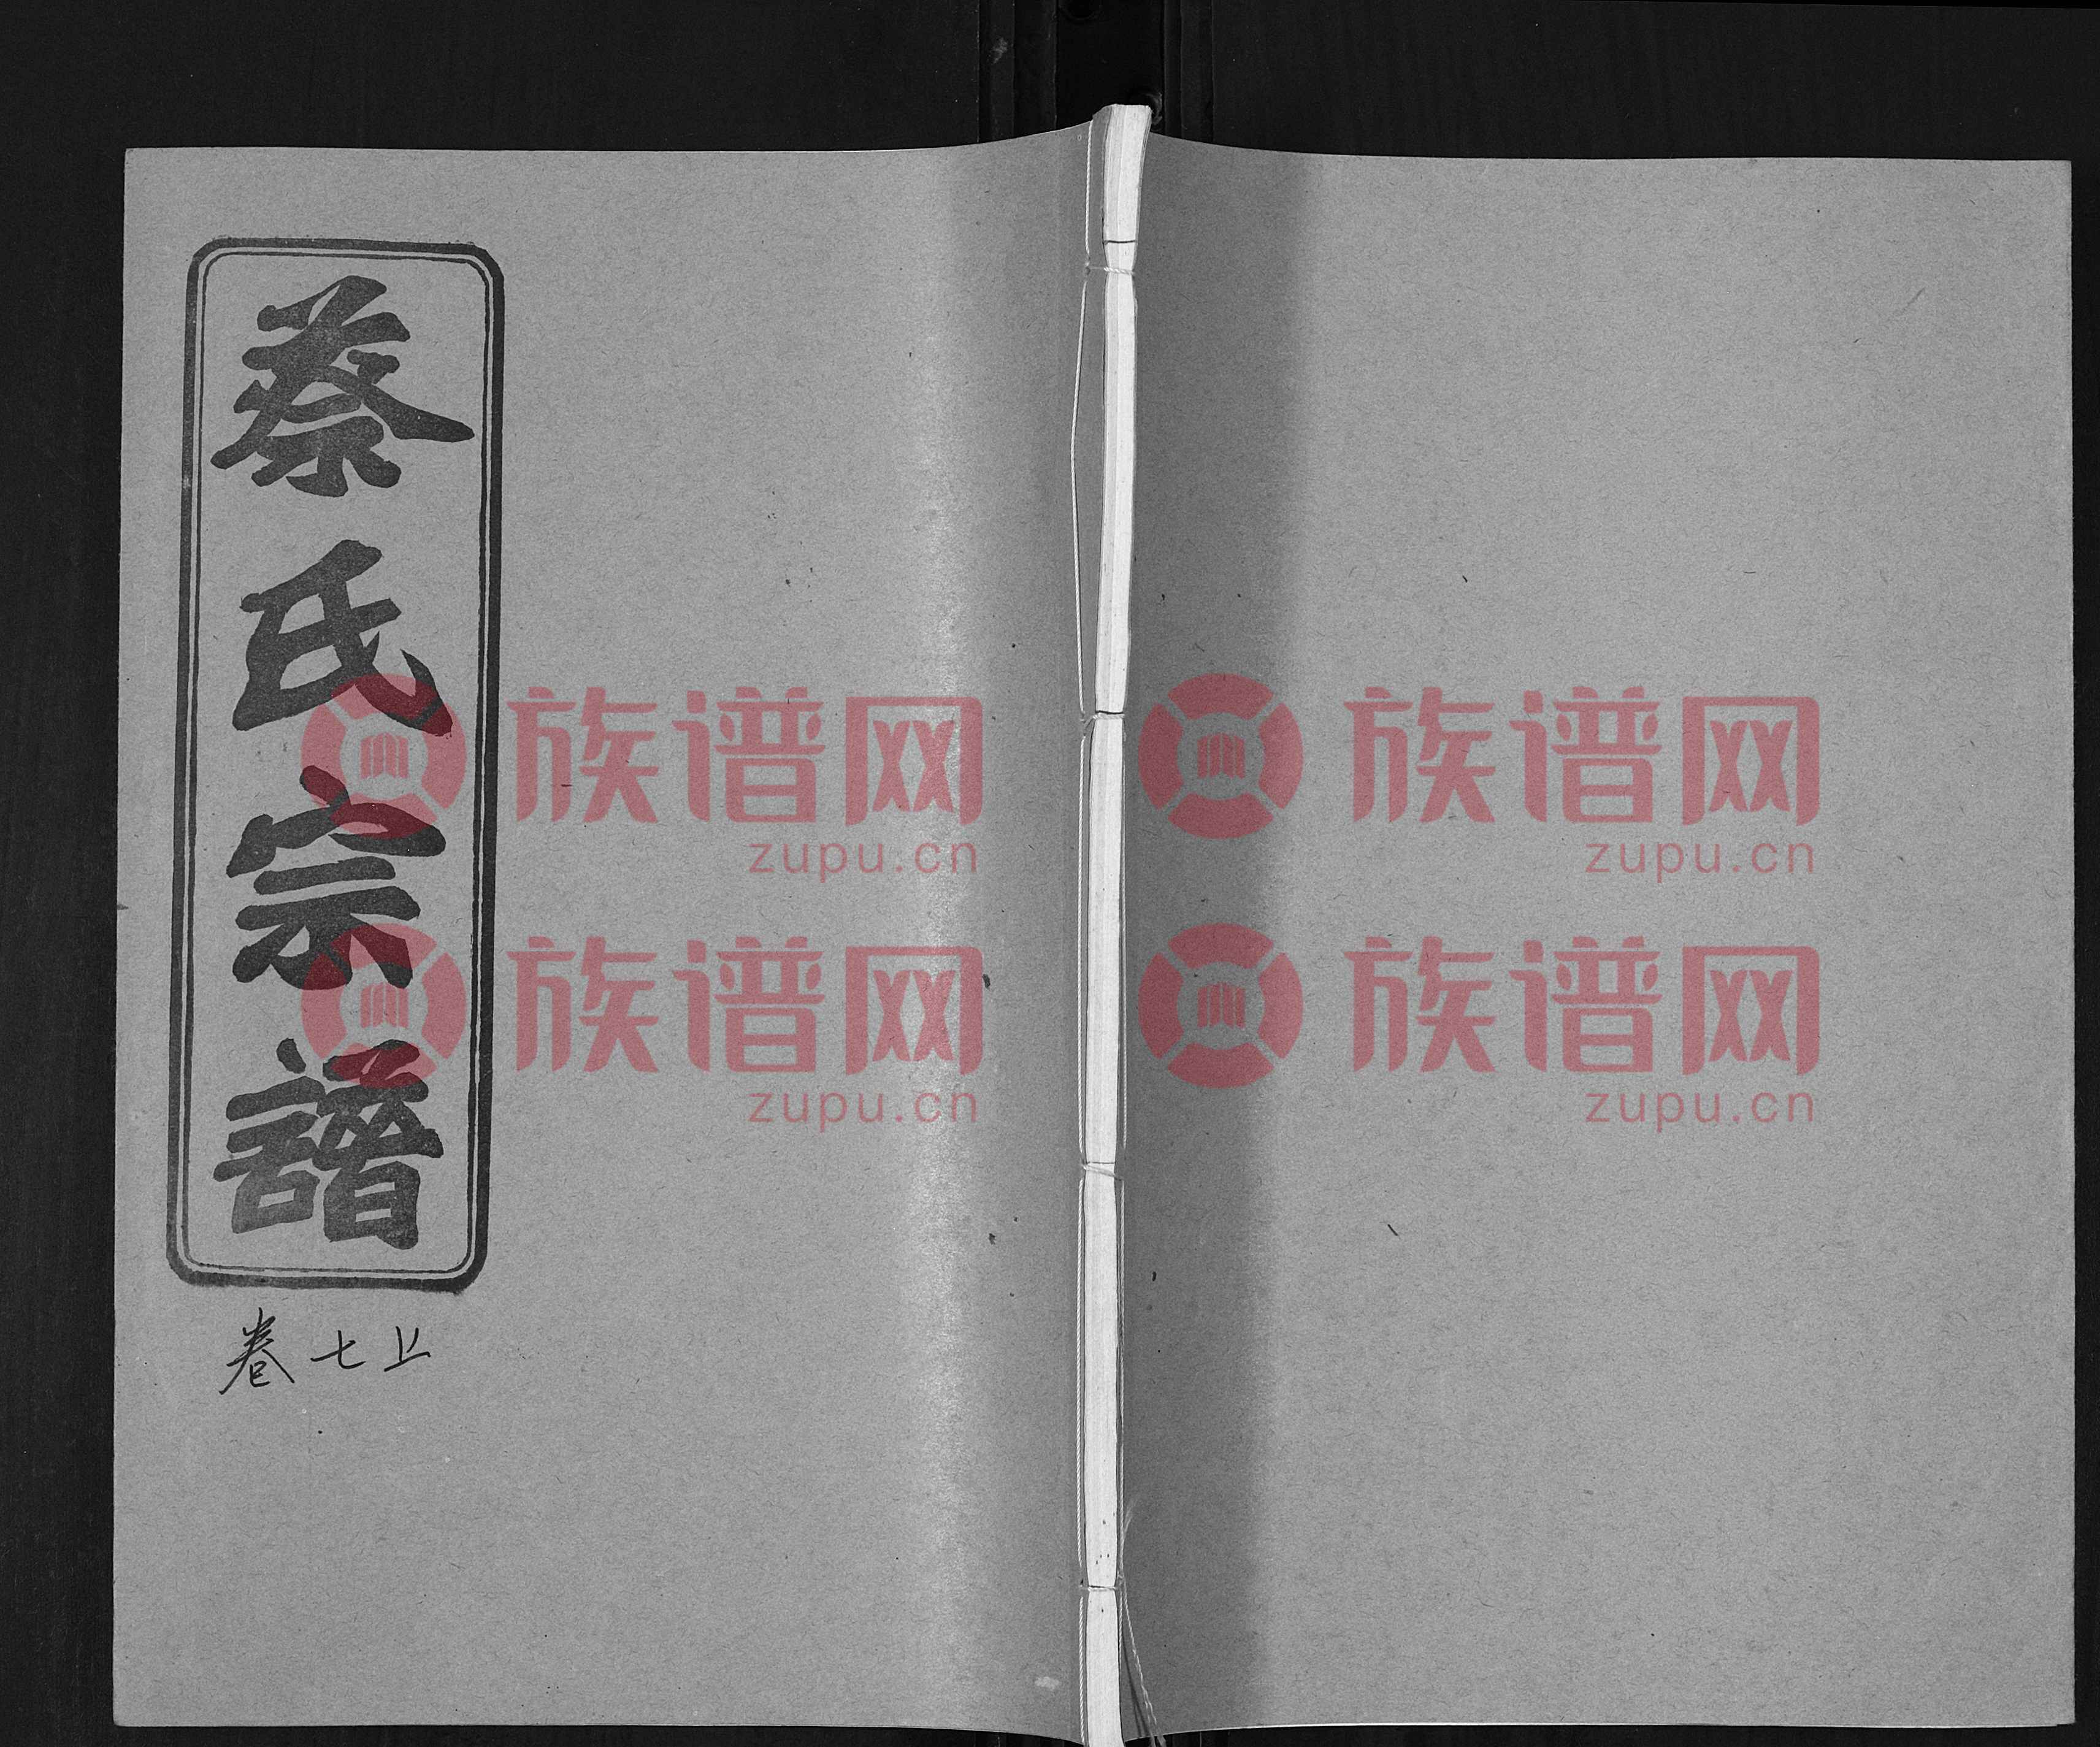 蔡氏宗譜
卷七上
族谱网 族谱网
zupu.cn zupu.cn
族谱网 族谱网
zupu.cn zupu.cn